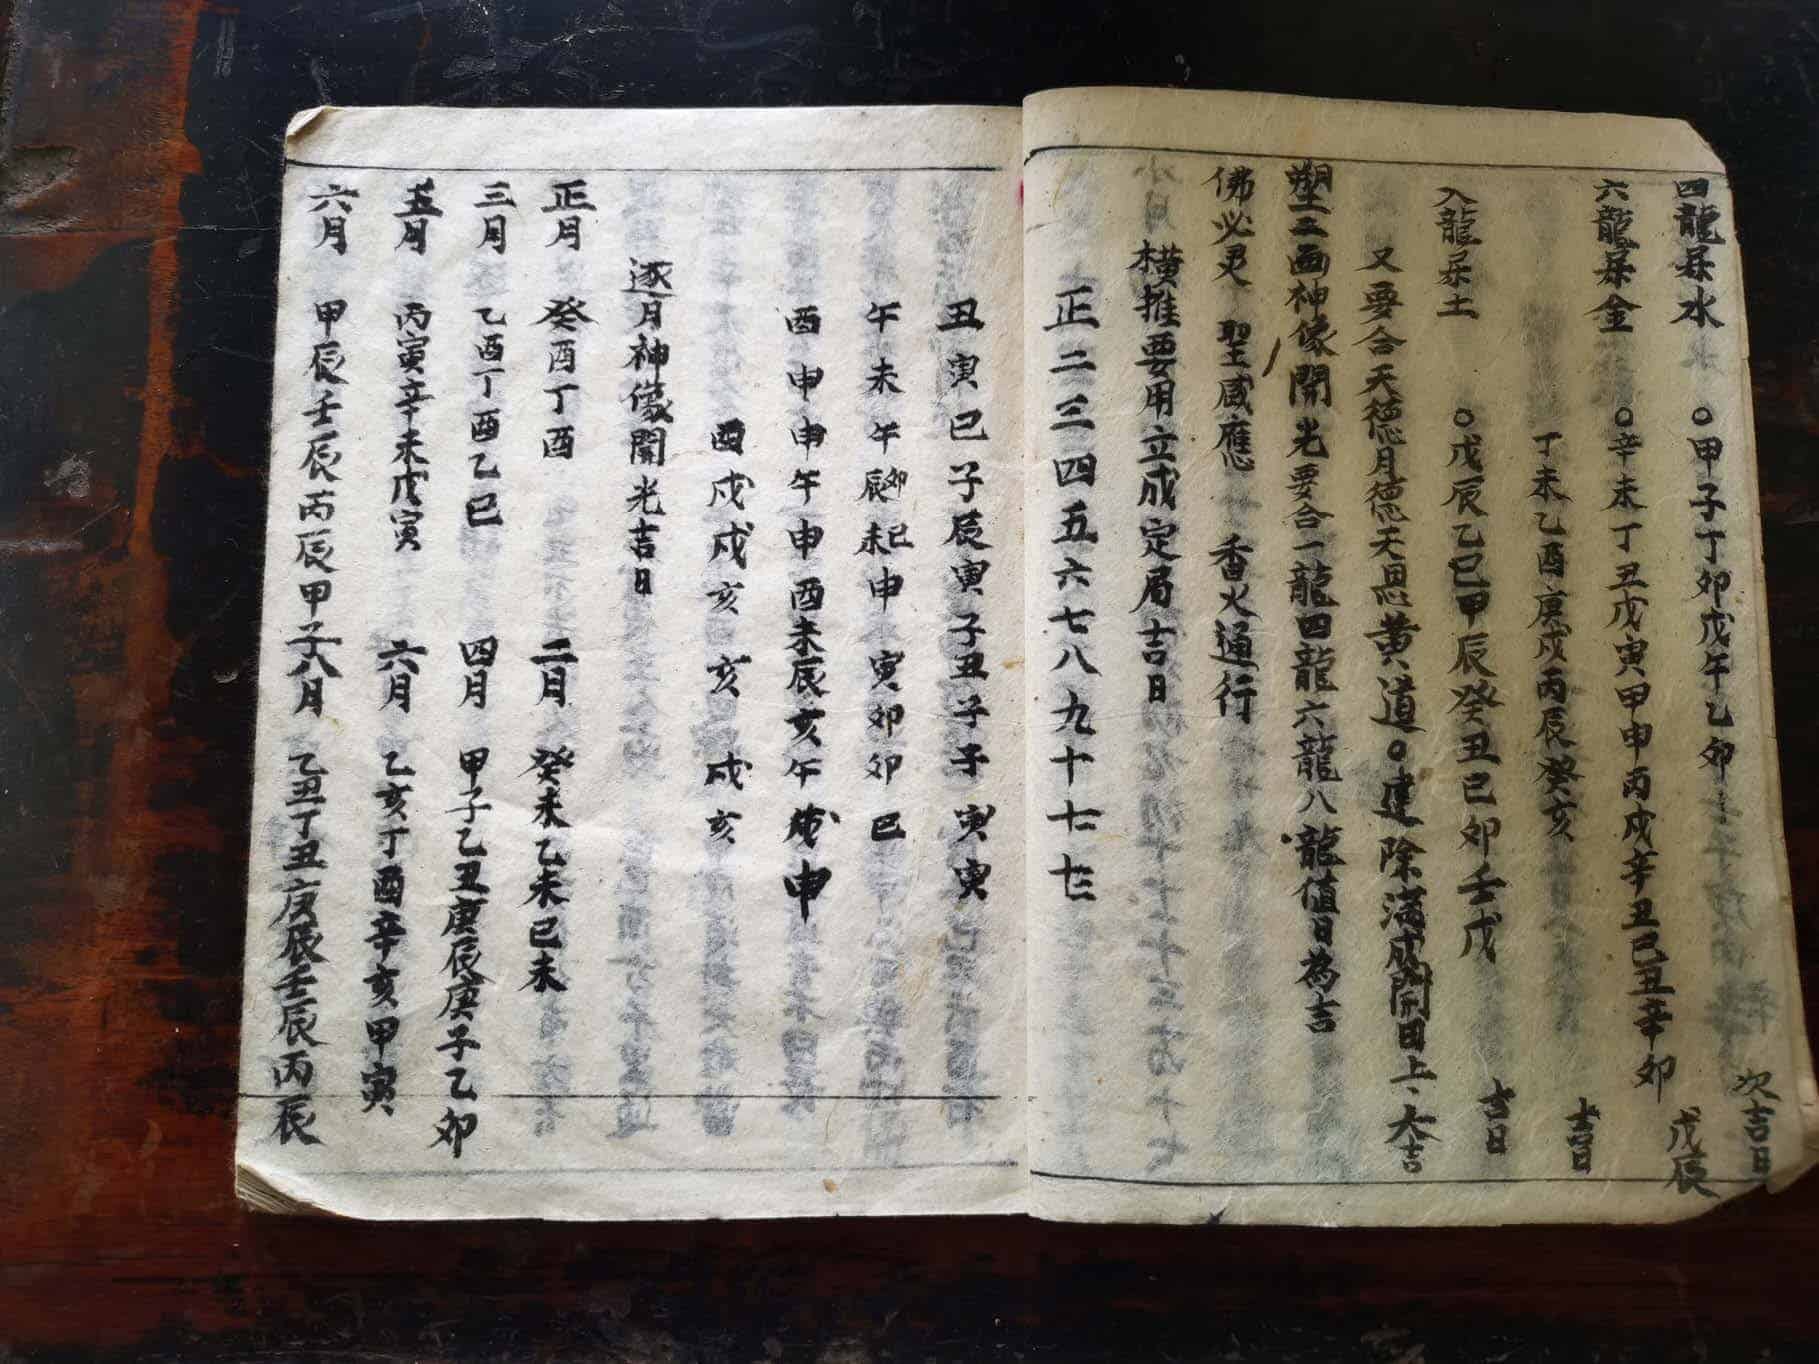 四龍屖水 ○甲子丁卯戊午乙卯 次吉日
戊辰
六龍屖金 ○辛未丁丑戊寅甲申丙戌辛丑己丑辛卯
丁未乙酉庚戌丙辰癸亥 吉日
入龍屖土 ○戊辰乙巳甲辰癸丑己卯壬戌 吉日
又要合天德月德天恩黄道○建除滿成開日上、大吉
塑三画神像開光要合一龍四龍六龍八龍值日為吉
佛必灵 聖感應 香火通行
横推要用立成定局吉日
正二三四五六七八九十十一十二
丑寅巳子辰寅子丑子子寅寅
午未午辰卯未巳申寅卯卯巳
酉申申午申酉未辰亥午戌申
酉戌戌亥亥戌亥
逐月神像開光吉日
正月 癸酉丁酉 二月 癸未乙未己未
三月 乙酉丁酉乙巳 四月 甲子乙丑庚辰庚子乙卯
五月 丙寅辛未戊寅 六月 乙亥丁酉辛亥甲寅
六月 甲辰壬辰丙辰甲子 八月 乙丑丁丑庚辰壬辰丙辰